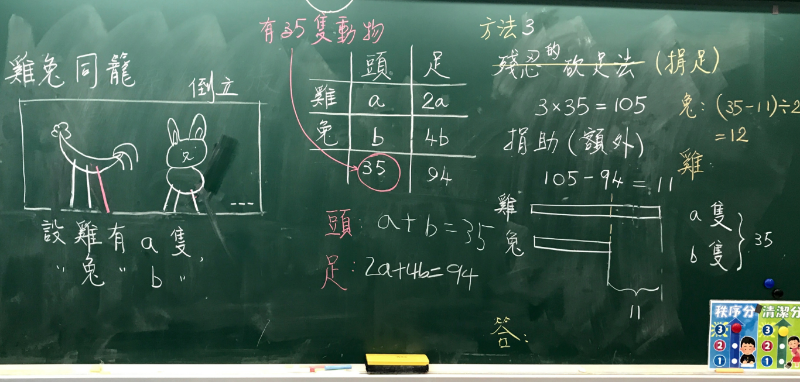 雞兔同籠
倒立
設雞有a隻,
〃兔〃b〃,
有35隻動物
頭 足
雞 a 2a
兔 b 4b
35 94
頭: a+b=35
足: 2a+4b=94
方法3
殘忍的砍足法 (捐足)
3×35=105
捐助(額外)
105-94=11
雞 a隻
兔 b隻
35
11
兔: (35-11)÷2
=12
雞:
答:
秩序分
3
2
1
清潔分
3
2
1